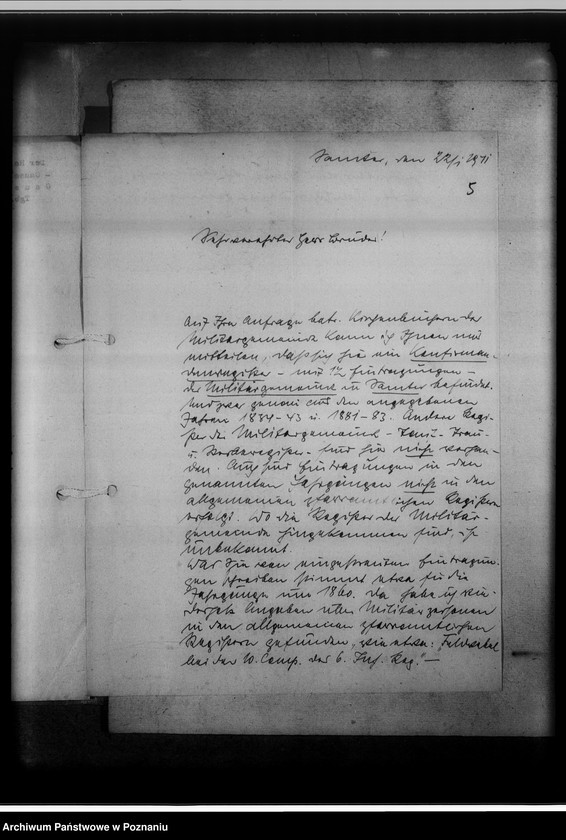 Samter, den 22/
5
Sehr verehrter Herr Bruder!
Auf Ihre Anfrage betr. Kirchenbüchern der
Militärgemeinde kann ich Ihnen nur
mitteilen, daß sich hie ein Konfirman-
denregister - mit Eintragungen -
der Militärgemeinde in Samter befindet.
Und zwar genau aus den angegebenen
Jahren 1834-43 u. 1881-83. Andere Regi-
ster der Militärgemeinde - Tauf- Trau-
u. Sterberegister - sind hie nicht vorhan-
den. Auch sind Eintragungen in den
genannten Jahrgängen nicht in den
allgemeinen pfarramtlichen Registern
erfolgt. Wo die Register der Militär-
gemeinde hingekommen sind, ist
unbekannt.
Was Sie von eingestreuten Eintragun-
gen schreiben stimmt etwa für die
Jahrgänge um 1860. Da habe ich wie-
derholt Angaben über Militärpersonen
in den allgemeinen pfarramtlichen
Registern gefunden, wie etwa: "Feldwebel
bei der 10. Comp. des 6. Inf. Reg." —
Archiwum Państwowe w Poznaniu